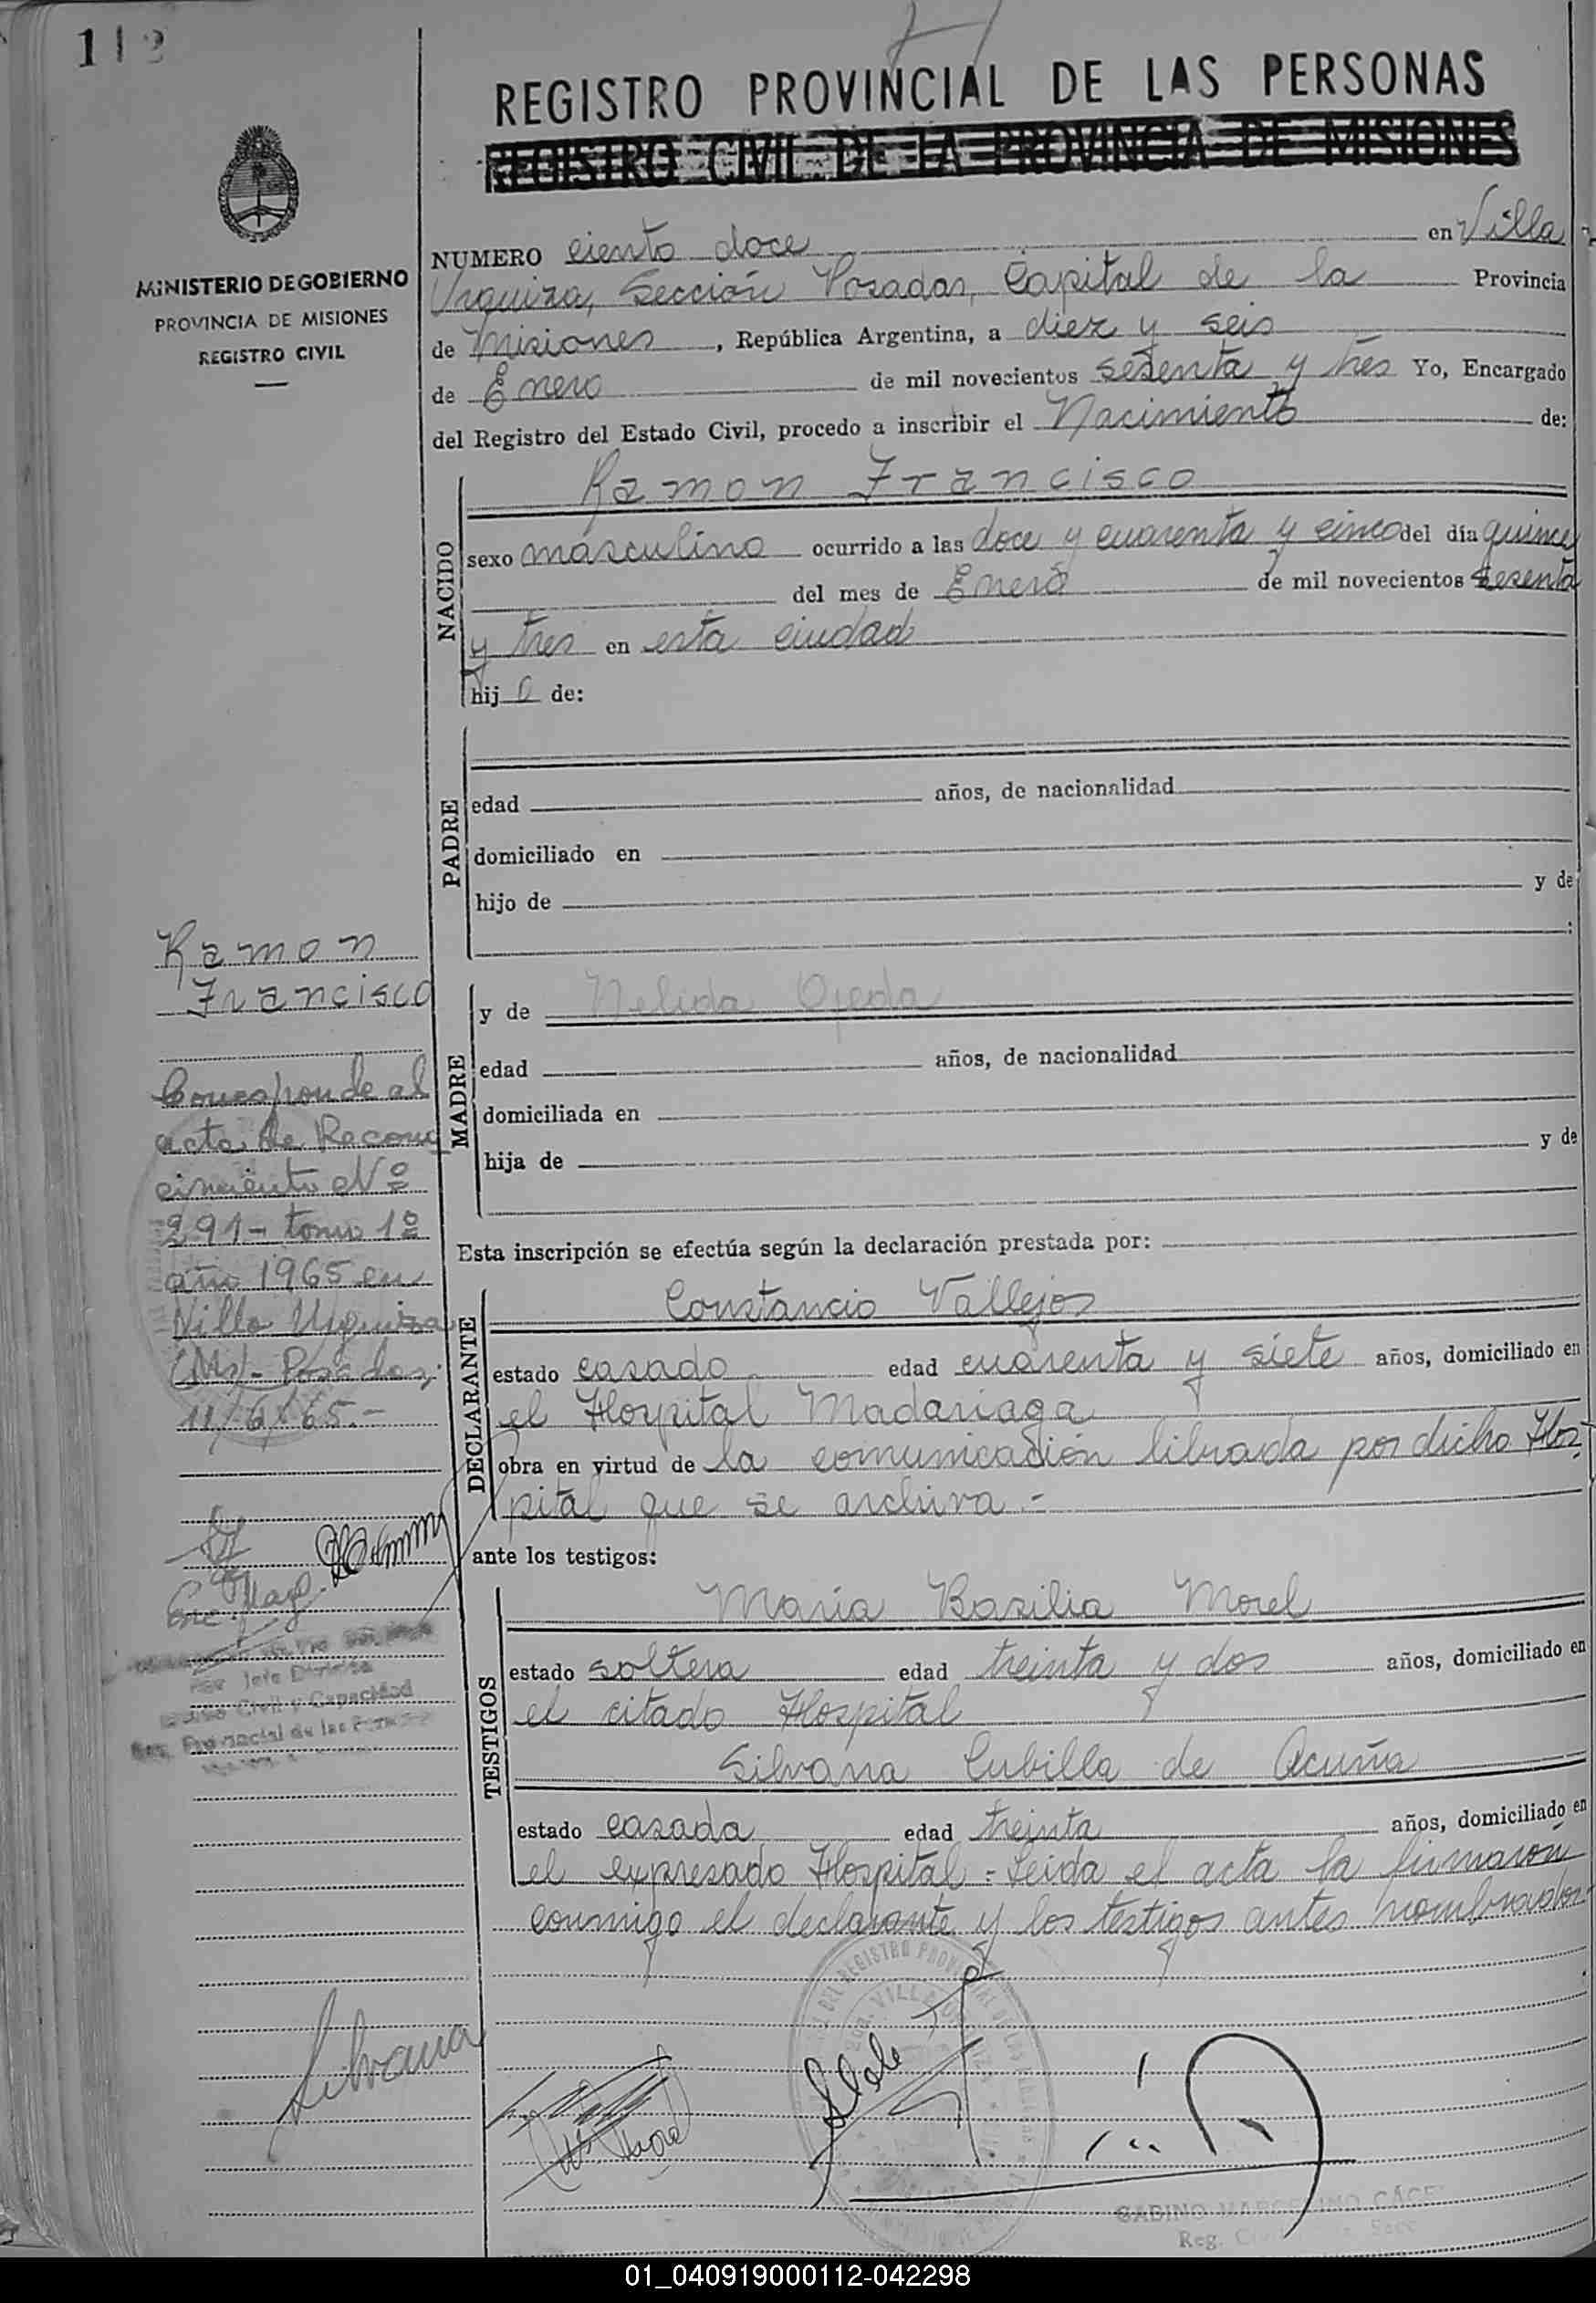 112
REGISTRO PROVINCIAL DE LAS PERSONAS
REGISTRO CIVIL DE LA PROVINCIA DE MISIONES
MINISTERIO DE GOBIERNO
PROVINCIA DE MISIONES
REGISTRO CIVIL
NUMERO ciento doce en Villa
Urquiza, Sección Posadas, Capital de la Provincia
de Misiones, República Argentina, a diez y seis
de Enero de mil novecientos sesenta y tres Yo, Encargado
del Registro del Estado Civil, procedo a inscribir el Nacimiento de:
NACIDO
Ramon Francisco
sexo masculino ocurrido a las doce y cuarenta y cinco del día quince
del mes de Enero de mil novecientos sesenta
y tres en esta ciudad
hijo de:
PADRE
edad años, de nacionalidad
domiciliado en
hijo de y de
:
MADRE
y de Nelida Ojeda
edad años, de nacionalidad
domiciliada en
hija de y de
Esta inscripción se efectúa según la declaración prestada por:
DECLARANTE
Constancio Vallejos
estado casado edad cuarenta y siete años, domiciliado en
el Hospital Madariaga
obra en virtud de la comunicación librada por dicho Hos-
pital que se archiva.-
ante los testigos:
TESTIGOS
María Basilia Morel
estado soltera edad treinta y dos años, domiciliado en
el citado Hospital
Silvana Cubilla de Acuña
estado casada edad treinta años, domiciliado en
el expresado Hospital = Leída el acta la firmaron
conmigo el declarante y los testigos antes nombrados
Ramon
Francisco
Corresponde al
acta de Recono
cimiento Nº
291- tomo 1º
año 1965 en
Villa Urquiza
(Ms)- Posadas,
11/6/65.-
Jefe División
Civil y Capacidad
Reg. Provincial de las
Silvana
GABINO MARCELINO CACE
Reg.
01_040919000112-042298